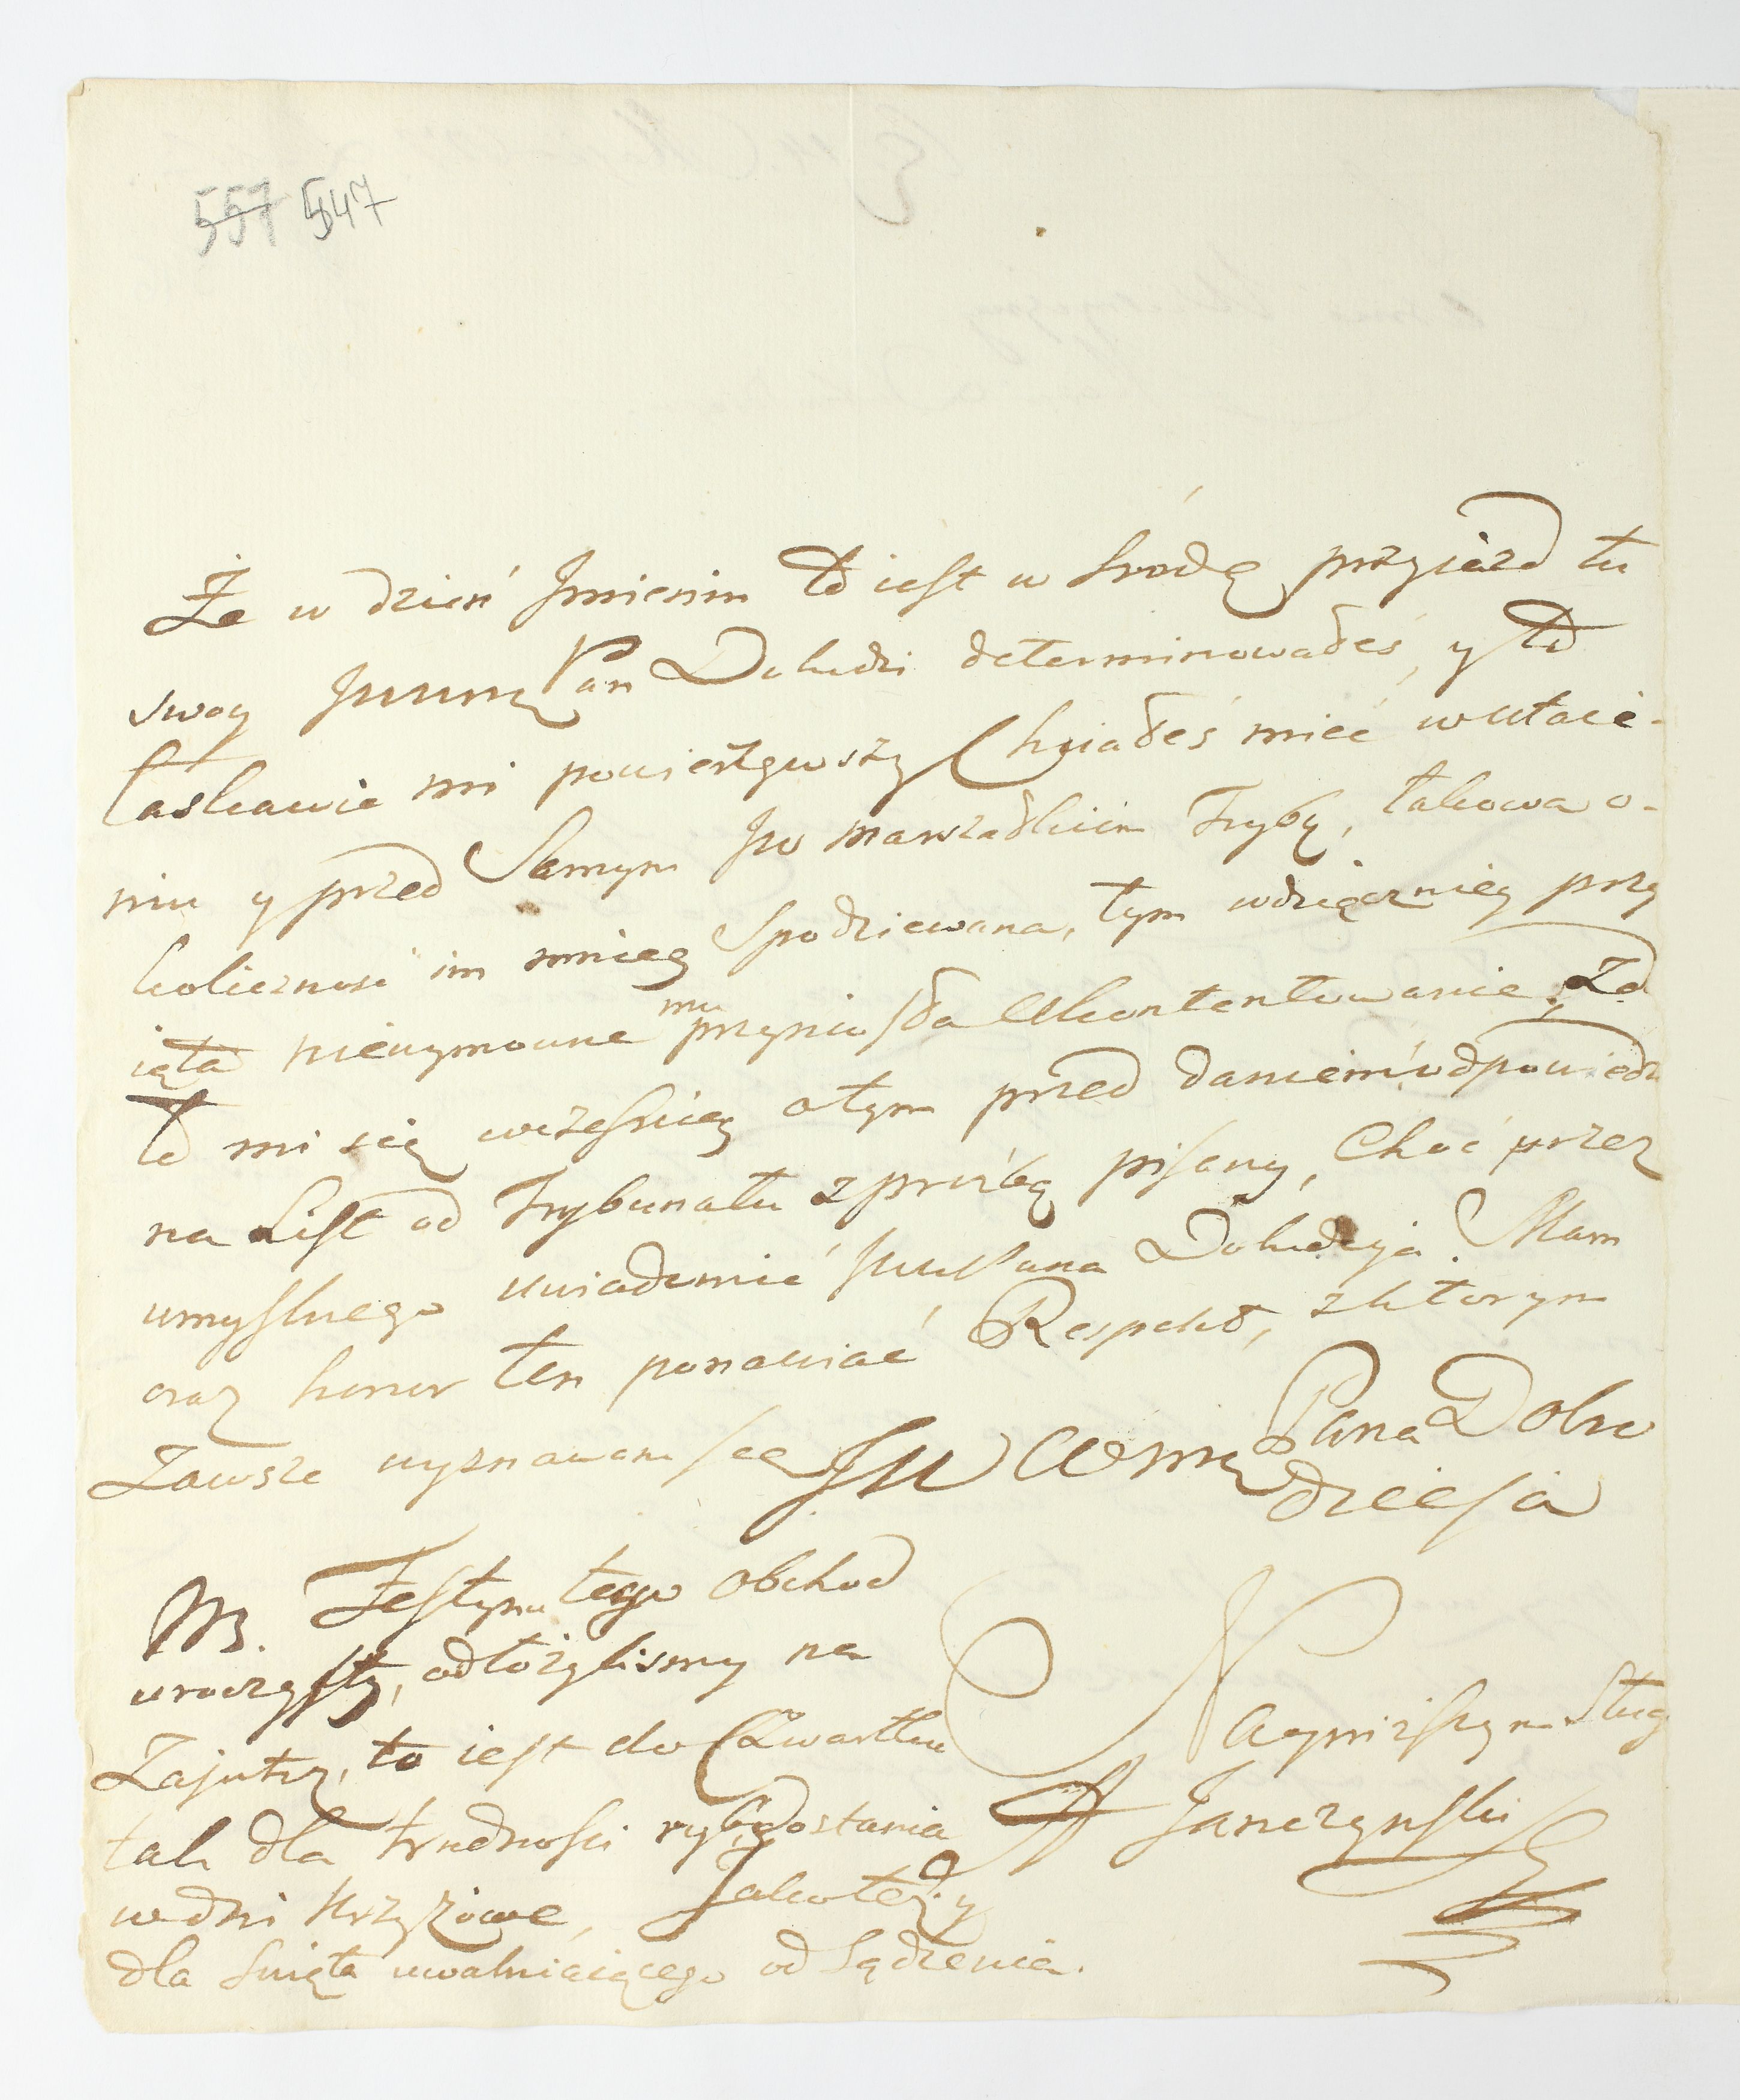 557 547
Że w dzień Jmienin to iest w Srodę przyiazd tu
swoy Pan Dobrdzi determinowałeś, y to
łaskawie mi powierzywszy Chciałeś mieć wutaie-
niu y przed Samym Jw Marszałkiem Tryby, takowa o-
koliczność im mniey Spodziewana, tym wdzięczniey przy
ięta niewymowne mu przyniosła Ukontentowanie. Zda
ło mi się wcześniey otym przed daniem odpowiedzi
na List od Trybunału zprośbą pisany, Choć przez
umyślnego uwiadomić Pana Dobrdzieja. Mam
oraz honor ten ponawiać Respekt, zktorym
Zawsze wyznawam się JW WMę Pana Dobro
dzieja
NB. Festynu tego obchod
uroczysty, odłożylismy na
Zajutrz, to iest do Czwartku
tak dla trudności ryb dostania
w dni Krzyżowe, Jako też y
dla Swięta uwalniaiącego od Sądzenia.
Nayniższym Sługą
Janczynski